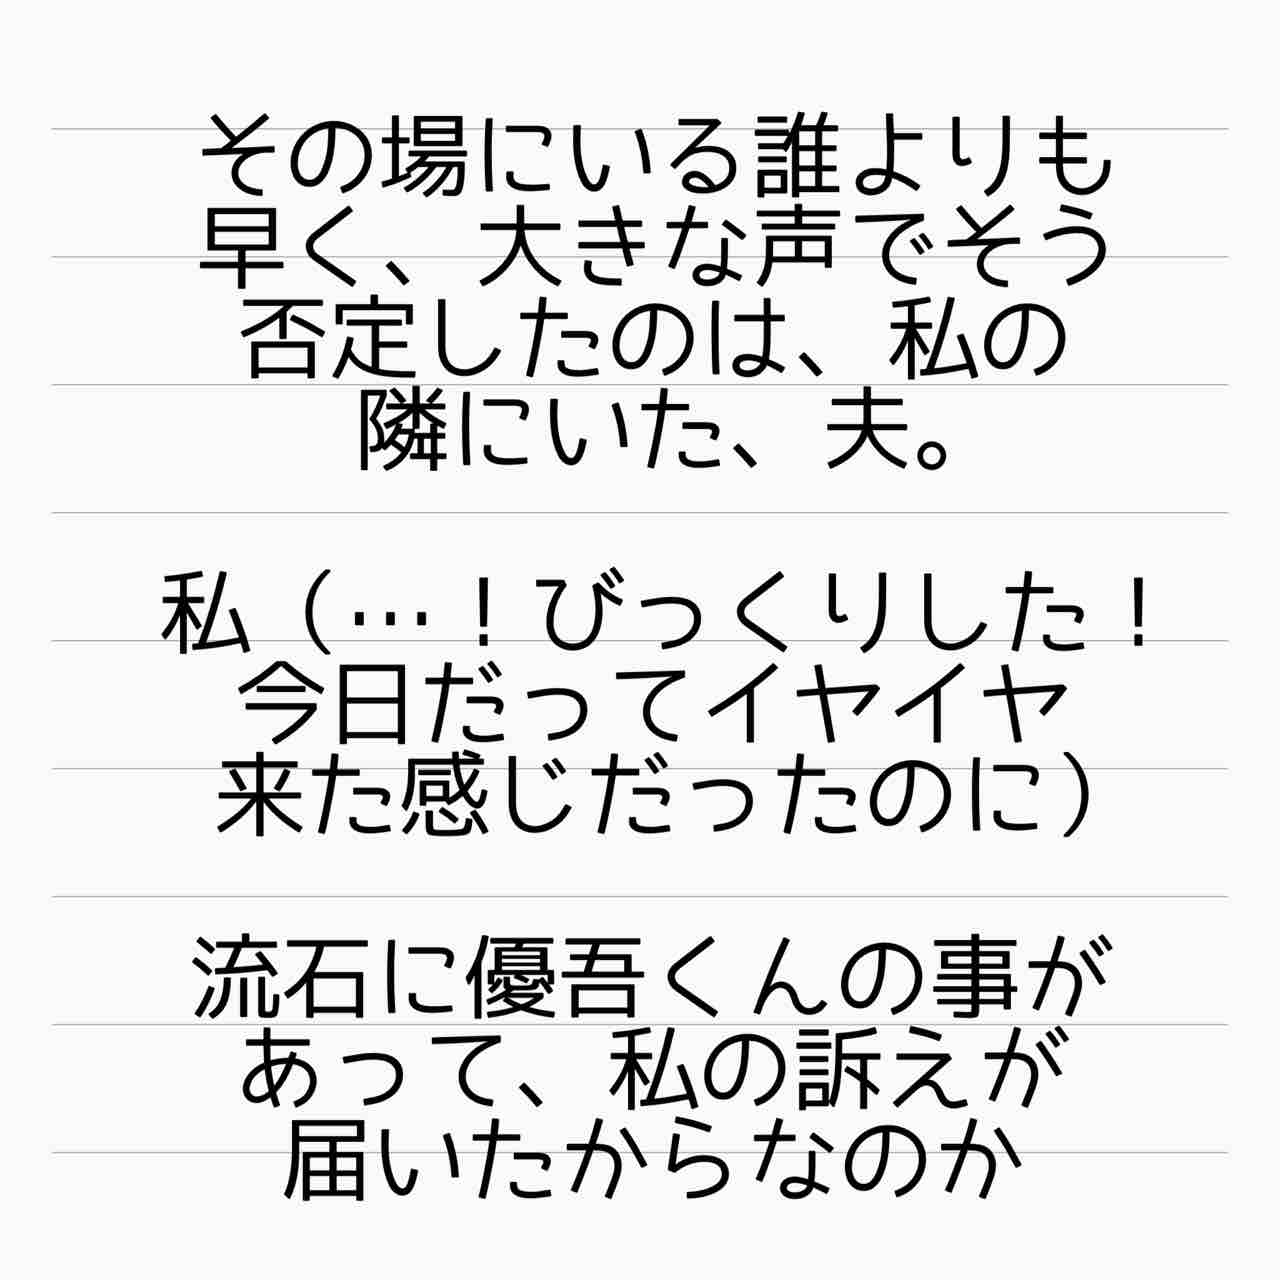 その場にいる誰よりも
早く、大きな声でそう
否定したのは、私の
隣にいた、夫。
私（…！びっくりした！
今日だってイヤイヤ
来た感じだったのに）
流石に優吾くんの事が
あって、私の訴えが
届いたからなのか